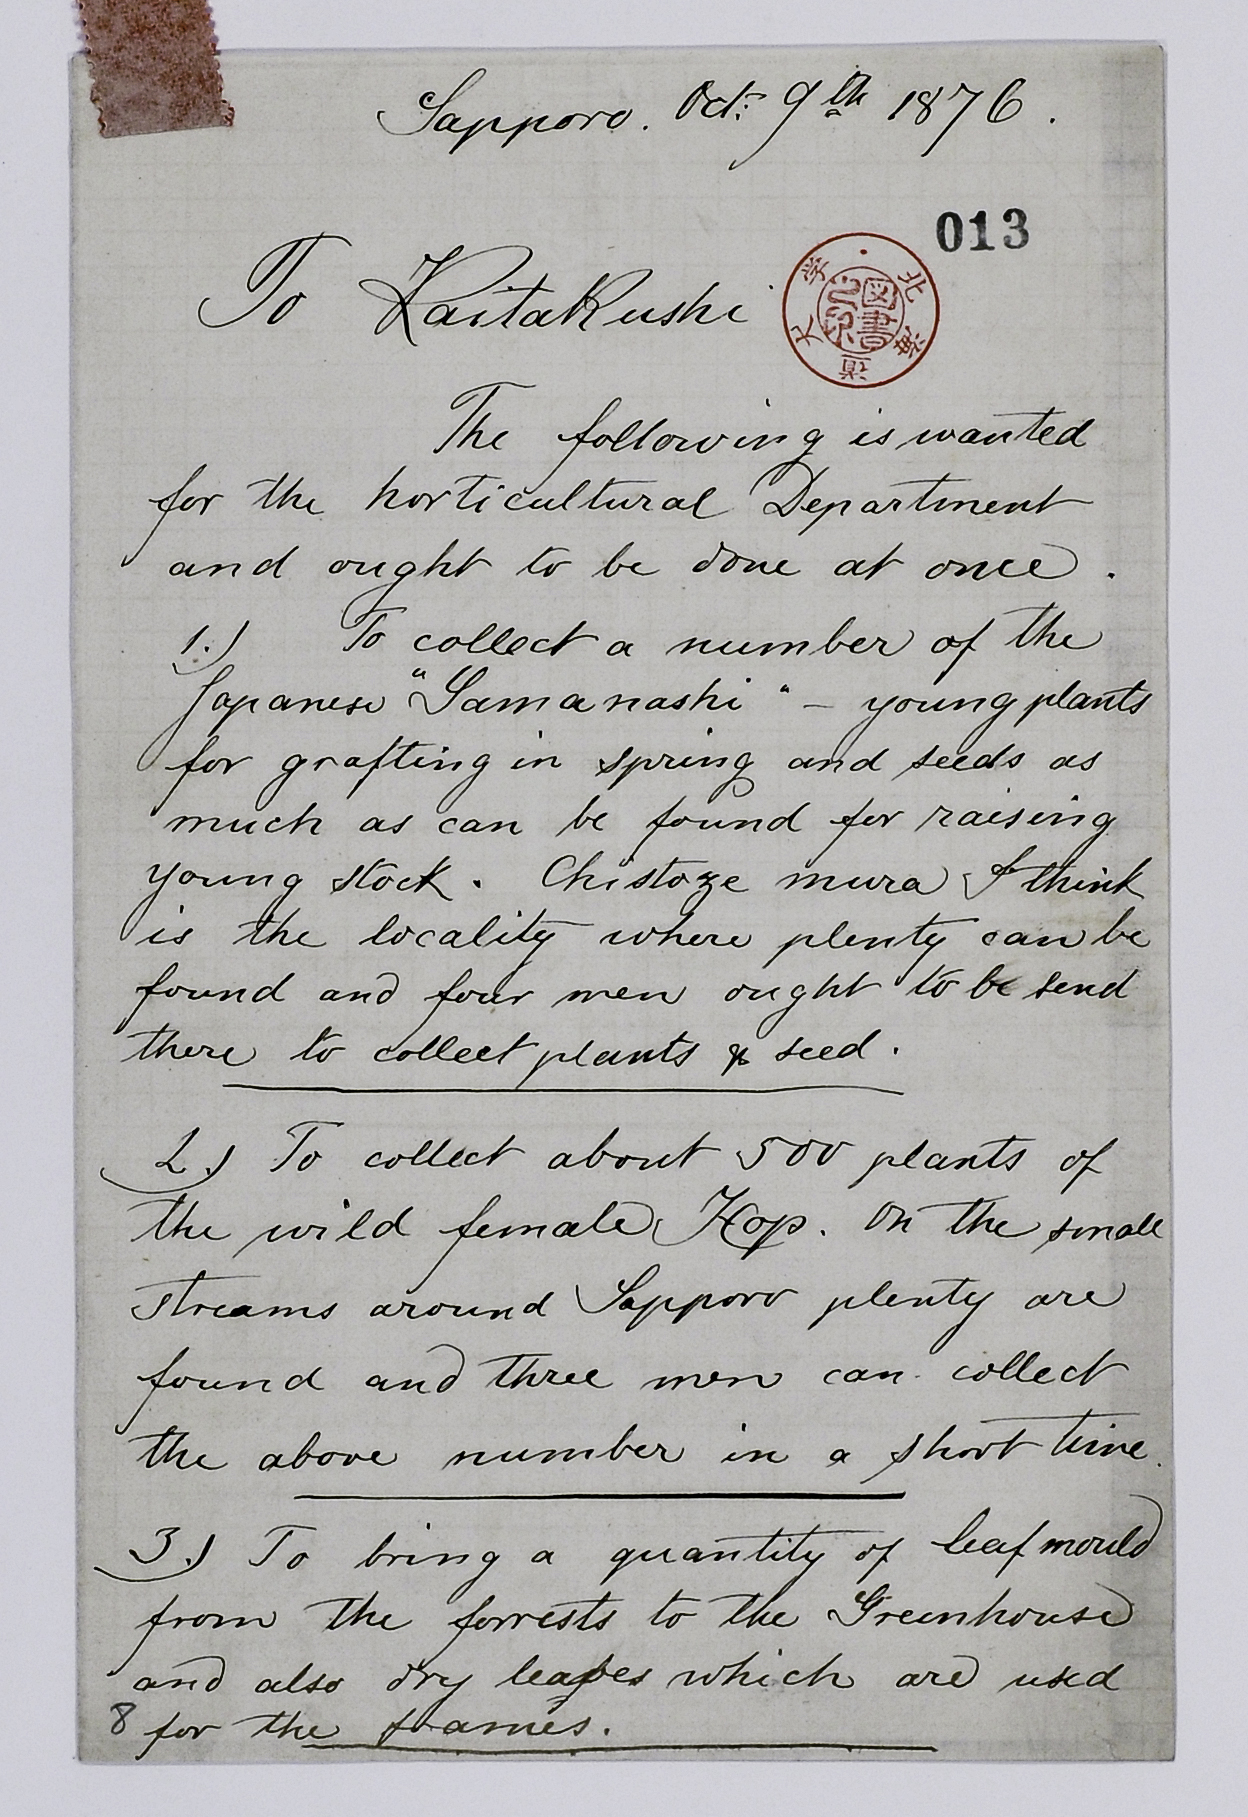 Sapporo. Oct: 9th 1876.
013
To Kaitakushi
北海道大学
図書之印
The following is wanted
for the horticultural Department
and ought to be done at once.
1.) To collect a number of the
Japanese "Yamanashi" - young plants
for grafting in spring and seeds as
much as can be found for raising
young stock. Chistoze mura I think
is the locality where plenty can be
found and four men ought to be send
there to collect plants & seed.
2.) To collect about 500 plants of
the wild female Hop. On the small
streams around Sapporo plenty are
found and three men can collect
the above number in a short time.
3.) To bring a quantity of leafmould
from the forrests to the Greenhouse
and also dry leafes which are used
8 for the frames.